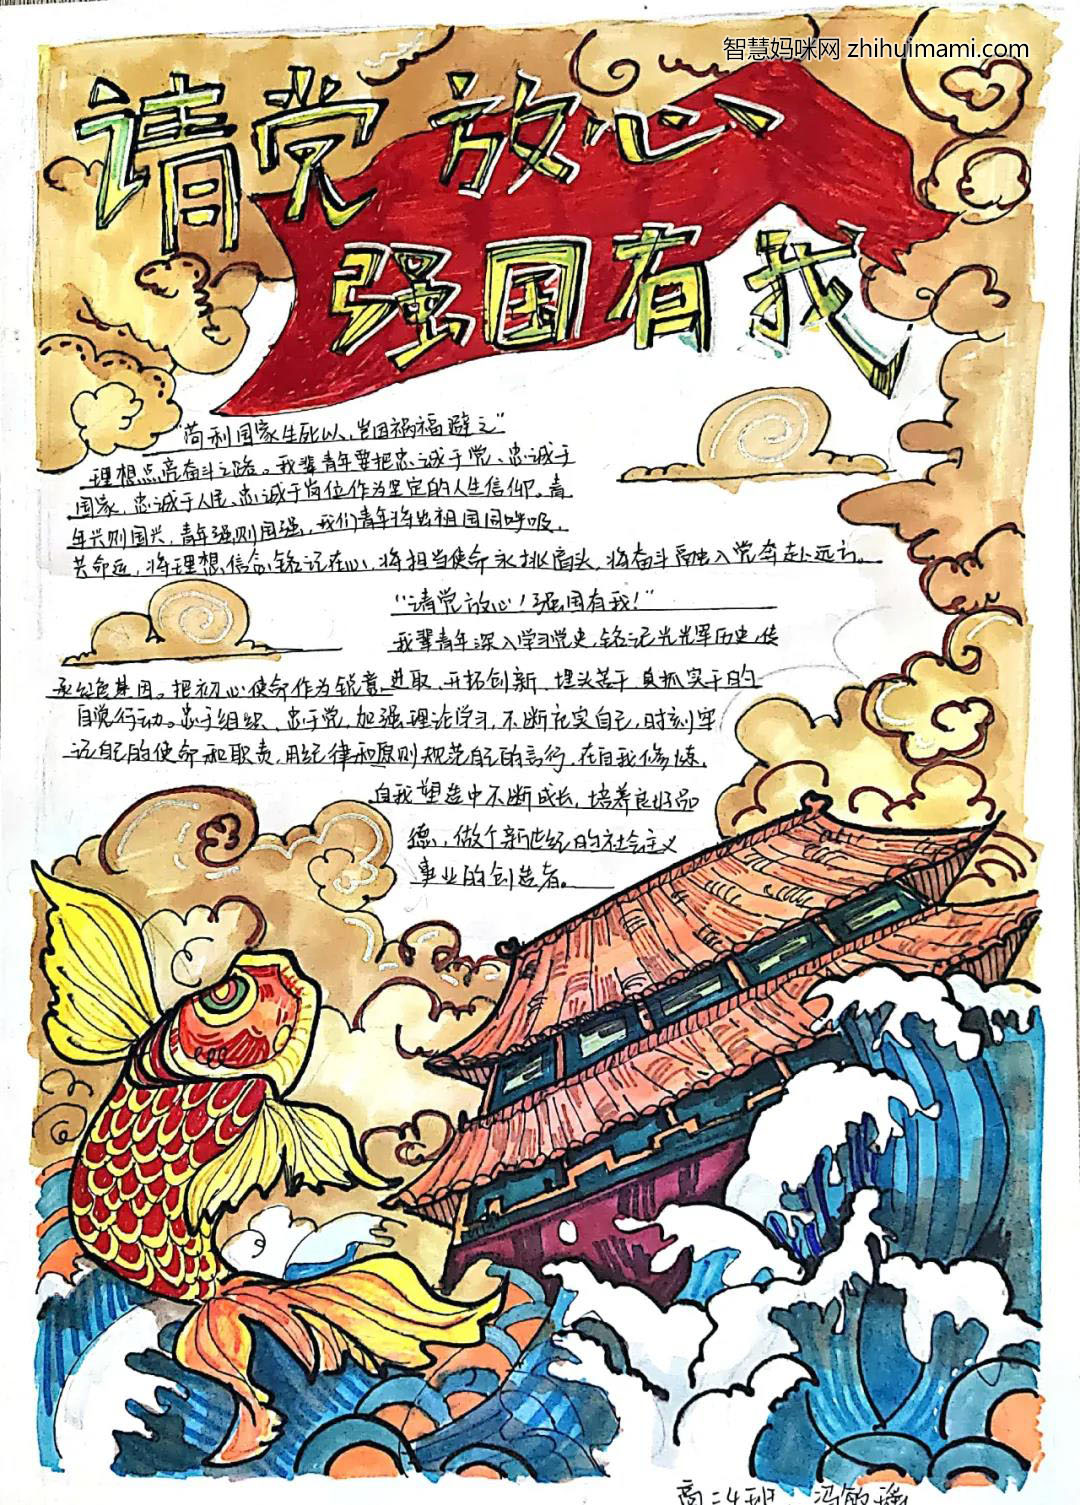 智慧妈咪网 zhihuimami.com
请党放心
强国有我
"苟利国家生死以,岂因祸福避之"
理想点亮奋斗之路。我辈青年要把忠诚于党、忠诚于
国家、忠诚于人民、忠诚于岗位作为坚定的人生信仰。青
年兴则国兴,青年强则国强,我们青年将与祖国同呼吸、
共命运,将理想信念铭记在心,将担当使命永挑肩头,将奋斗融入党奔赴远方。
"请党放心!强国有我!"
我辈青年深入学习党史,铭记光辉历史,传
承红色基因。把初心使命作为锐意进取、开拓创新、埋头苦干、真抓实干的
自觉行动。忠于组织、忠于党,加强理论学习,不断充实自己,时刻牢
记自己的使命和职责,用纪律和原则规范自己的言行,在自我修炼、
自我塑造中不断成长,培养良好品
德,做个新世纪的社会主义
事业的创造者。
高二4班 冯